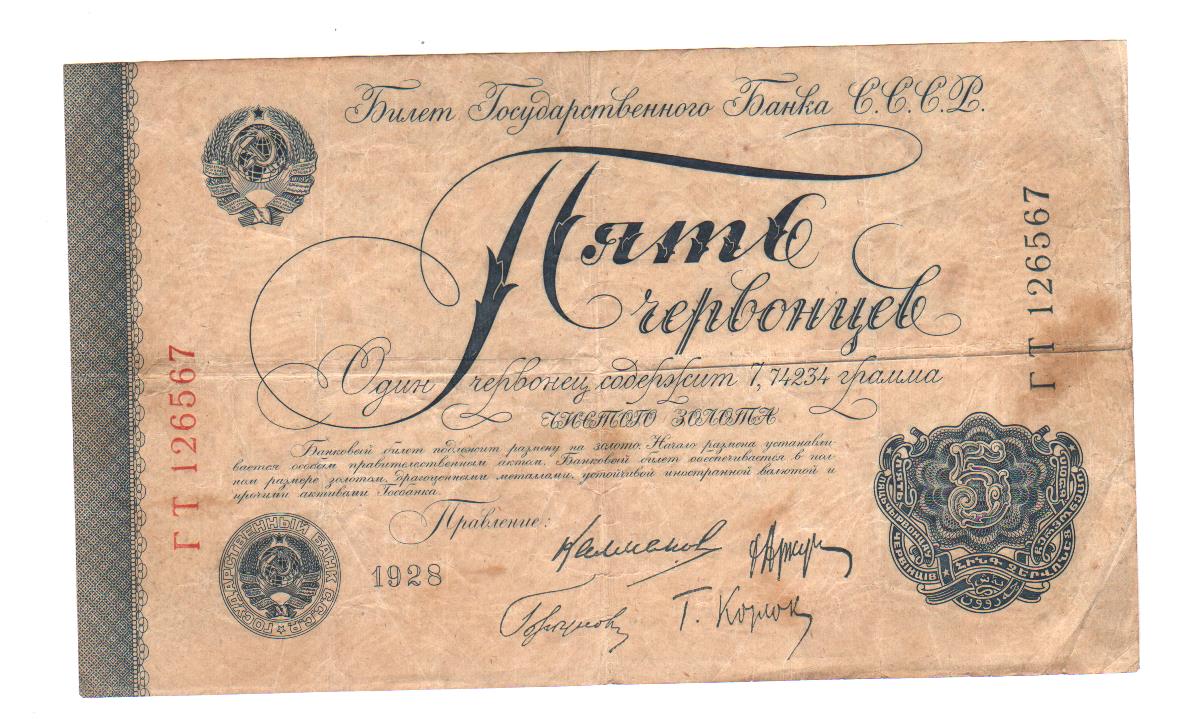 Билет Государственного Банка С.С.С.Р.
Пять
червонцев
Один червонец содержит 7,74234 грамма
чистого золота
Банковый билет подлежит размену на золото. Начало размена устанавли-
вается особым правительственным актом. Банковый билет обеспечивается в пол-
ном размере золотом, драгоценными металлами, устойчивой иностранной валютой и
прочими активами Госбанка.
Правление:
1928
ГТ 126567
ГТ 126567
ГОСУДАРСТВЕННЫЙ БАНК С.С.С.Р.
5
ՀԻՆԳ ՉԵՐՎՈՆԵՑ